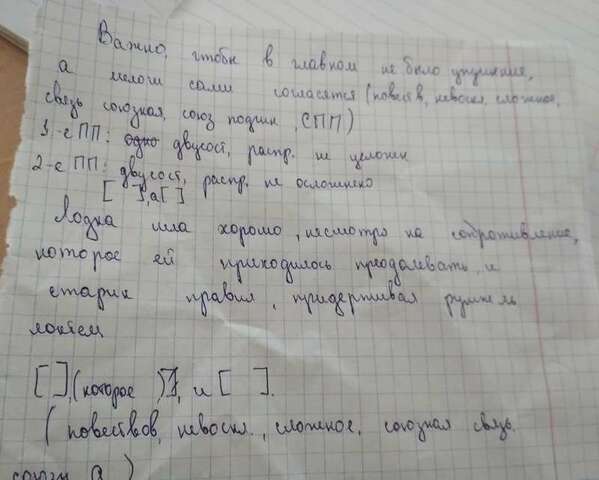 Важно, чтобы в главном не было упущения,
а мелочи сами согласятся (повеств, невоскл, сложное,
связь союзная, союз подчин, СПП)
1-е ПП: одно двусост, распр. не
2-е ПП: двусост, распр. не осложнено
[ ], а [ ]
Лодка шла хорошо, несмотря на сопротивление,
которое ей приходилось преодолевать, и
старик правил, придерживая румпель
локтем
[ ], (которое ), и [ ].
(повествов, невоскл., сложное, союзная связь,